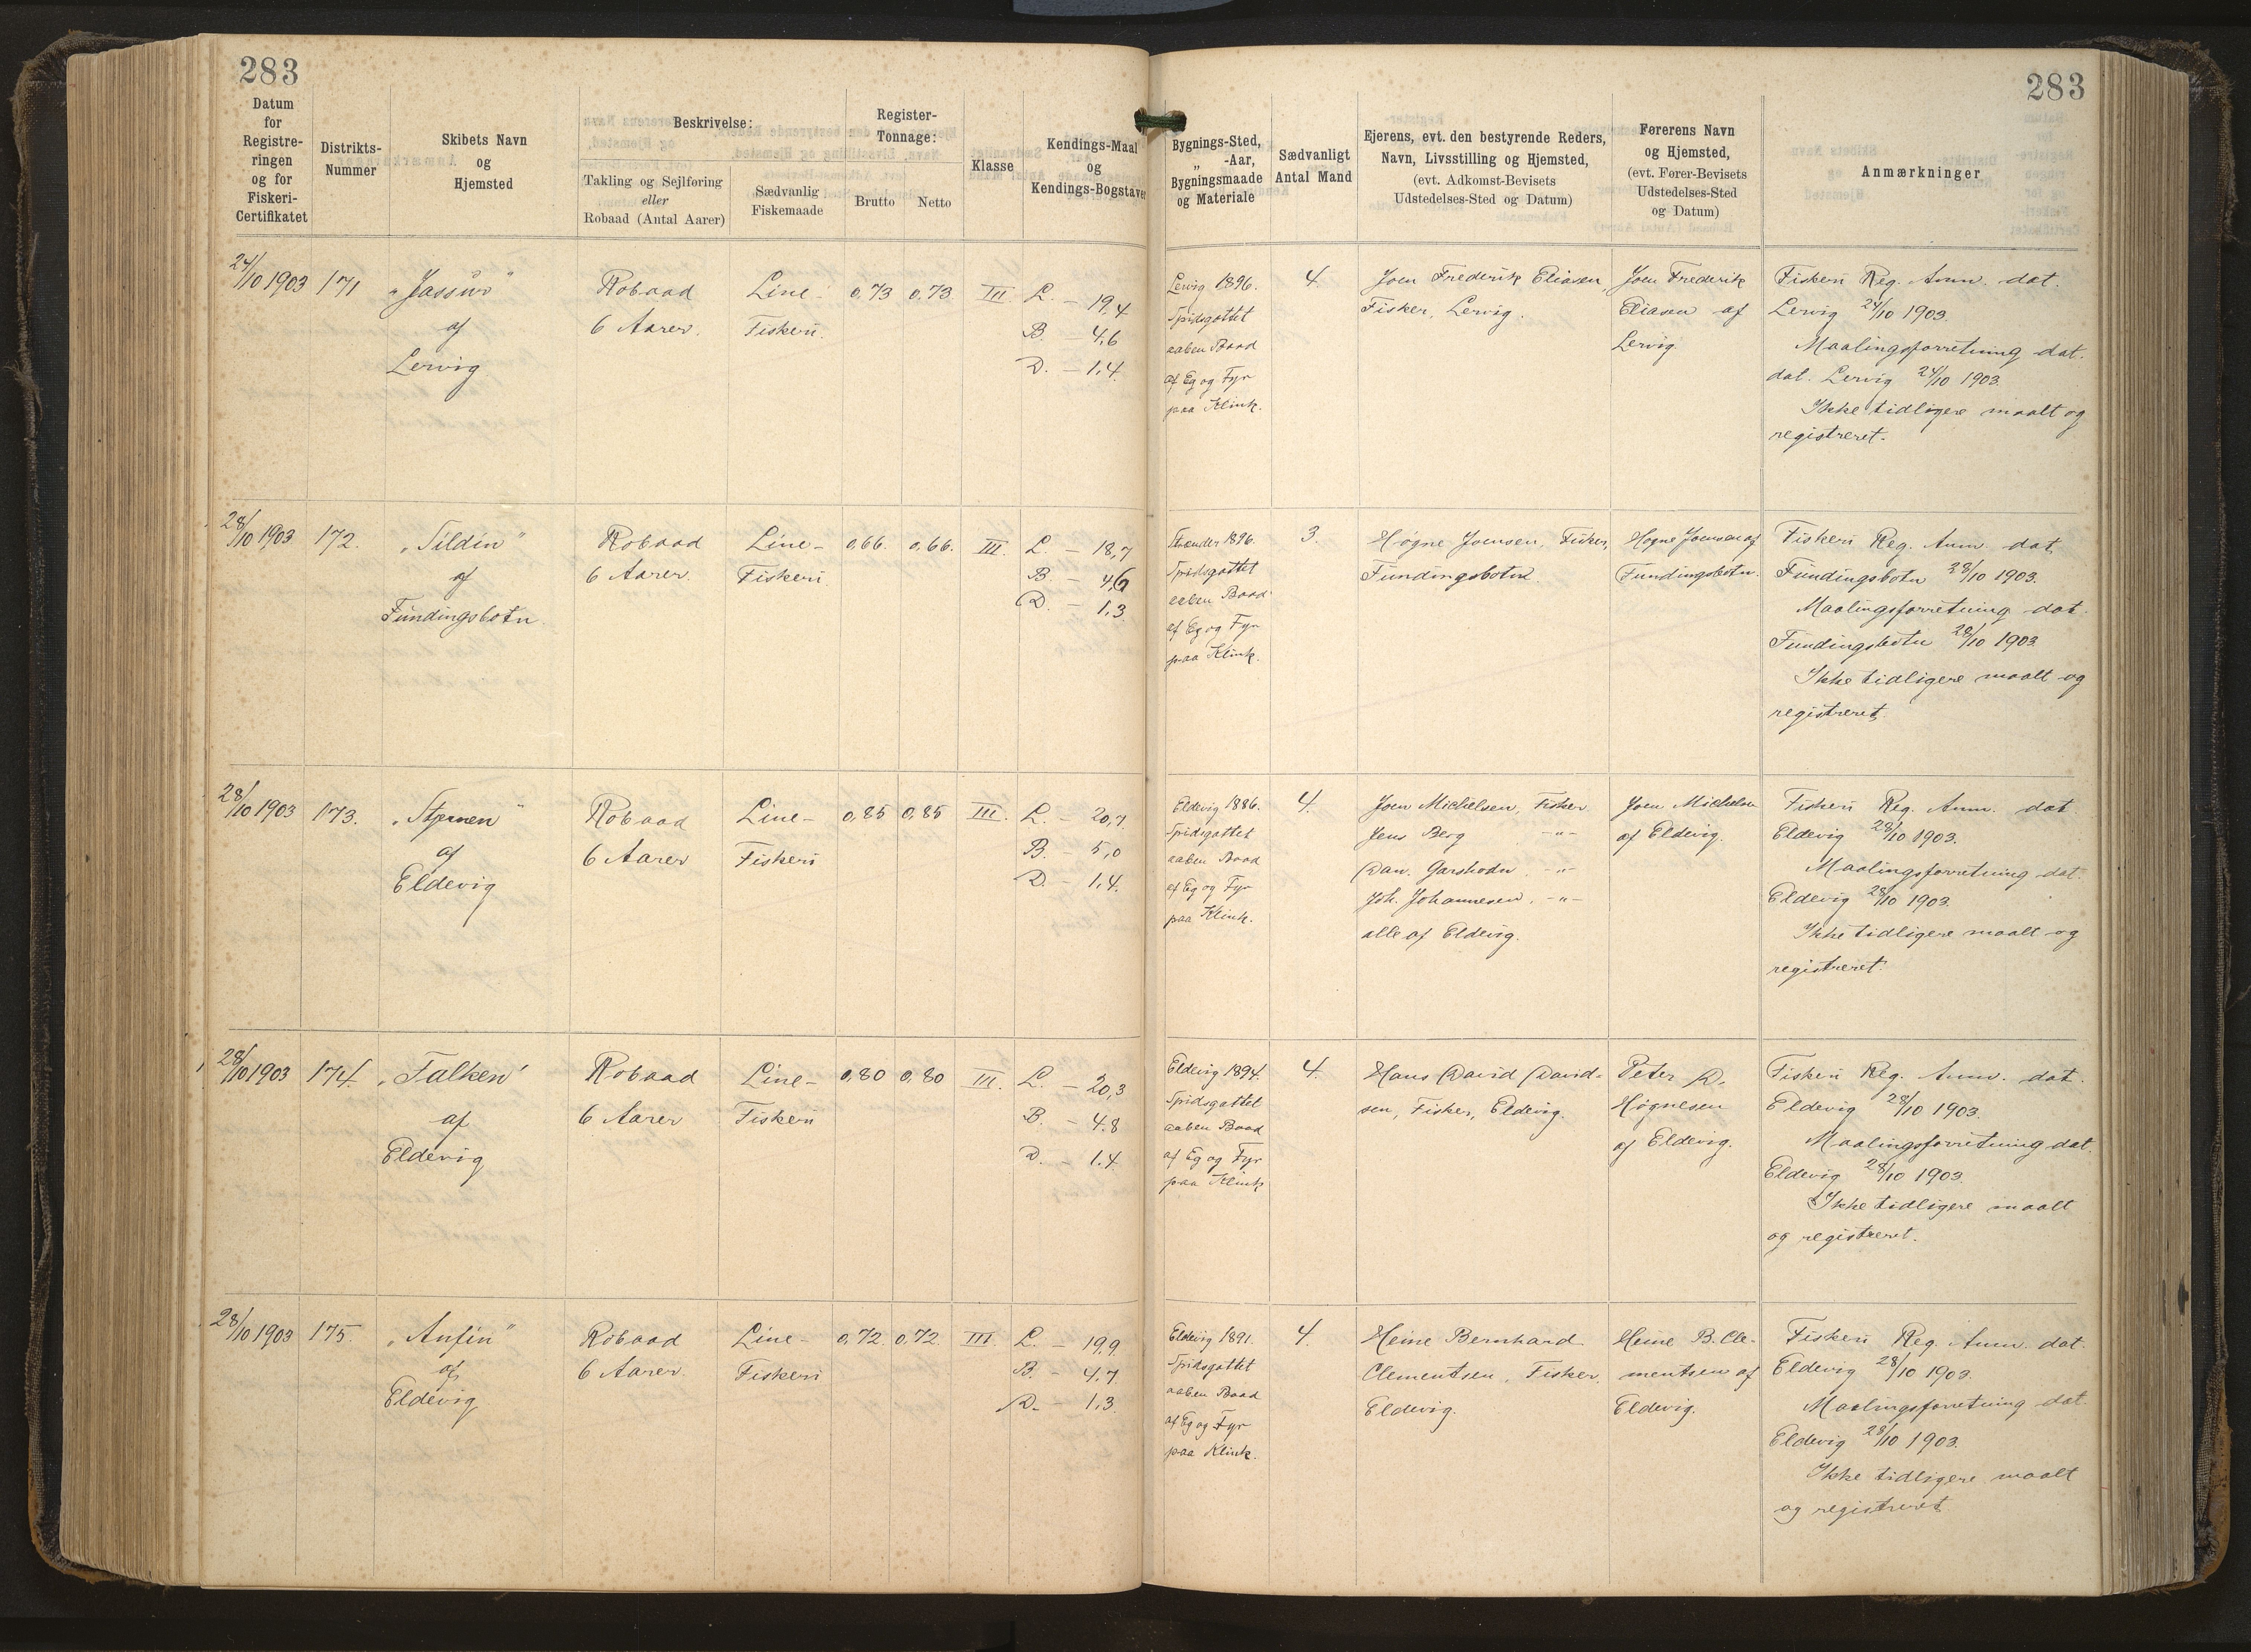 283
283
Datum
for
Registre-
ringen
og for
Fiskeri-
Certifikatet
Distrikts-
Nummer
Skibets Navn
og
Hjemsted
Beskrivelse:
Takling og Sejlføring
eller
Robaad (Antal Aarer)
Sædvanlig
Fiskemaade
Register-
Tonnage:
Brutto
Netto
Klasse
Kendings-Maal
og
Kendings-Bogstaver
Bygnings-Sted,
„ -Aar,
Bygningsmaade
og Materiale
Sædvanligt
Antal Mand
Ejerens, evt. den bestyrende Reders,
Navn, Livsstilling og Hjemsted,
(evt. Adkomst-Bevisets
Udstedelses-Sted og Datum)
Førerens Navn
og Hjemsted,
(evt. Fører-Bevisets
Udstedelses-Sted
og Datum)
Anmærkninger
24/10 1903
171
af
Lervig
Robaad
6 Aarer.
Line-
Fiskeri.
0,73
0,73
III.
L. – 19,4
B. – 4,6
D. – 1,4.
Lervig 1896.
Spidsgattet
aaben Baad
af Eg og Fyr
paa Klink.
4.
Joen Frederik Eliasen,
Fisker, Lervig.
Joen Frederik
Eliasen af
Lervig.
Fiskeri Reg. Anm. dat.
Lervig 24/10 1903.
Maalingsforretning dat.
dat. Lervig 24/10 1903.
Ikke tidligere maalt og
registreret.
28/10 1903
172.
„Tildin“
af
Fundingsbotn.
Robaad
6 Aarer.
Line-
Fiskeri.
0,66.
0,66.
III.
L. – 18,7
B. – 4,6
D. – 1,3
Strænder 1896.
Spidsgattet
aaben Baad
af Eg og Fyr
paa Klink.
3.
Høgne Joensen, Fisker,
Fundingsbotn.
Høgne Joensen af
Fundingsbotn.
Fiskeri Reg. Anm. dat.
Fundingsbotn 28/10 1903.
Maalingsforretning dat.
Fundingsbotn 28/10 1903.
Ikke tidligere maalt og
registreret.
28/10 1903
173.
„Stjernen“
af
Eldevig
Robaad
6 Aarer
Line-
Fiskeri
0,85
0,85
III.
L. – 20,7.
B. – 5,0
D. – 1,4.
Eldevig 1886.
Spidsgattet
aaben Baad
af Eg og Fyr
paa Klink.
4.
Joen Michelsen, Fisker
Jens Berg -"-
Dan. Garshodn. -"-
Joh. Johannesen. -"-
alle af Eldevig.
Joen Michelsen
af Eldevig.
Fiskeri Reg. Anm. dat.
Eldevig 28/10 1903.
Maalingsforretning dat.
Eldevig 28/10 1903.
Ikke tidligere maalt og
registreret.
28/10 1903
174.
„Falken“
af
Eldevig
Robaad
6 Aarer
Line-
Fiskeri
0,80
0,80
III.
L. – 20,3
B. – 4.8
D. – 1.4.
Eldevig 1894.
Spidsgattet
aaben Baad
af Eg og Fyr
paa Klink
4.
Hans David David-
sen, Fisker, Eldevig.
Peter D.
Høgnesen
af Eldevig.
Fiskeri Reg. Anm. dat.
Eldevig 28/10 1903.
Maalingsforretning dat.
Eldevig 28/10 1903.
Ikke tidligere maalt
og registreret.
28/10 1903
175.
„Anfin“
af
Eldevig
Robaad
6 Aarer.
Line-
Fiskeri
0,72.
0,72.
III.
L. – 19,9
B. – 4,7.
D. – 1,3.
Eldevig 1891.
Spidsgattet
aaben Baad
af Eg og Fyr
paa Klink.
4.
Heine Bernhard
Clementsen, Fisker,
Eldevig.
Heine B. Cle-
mentsen af
Eldevig.
Fiskeri Reg. Anm. dat.
Eldevig 28/10 1903.
Maalingsforretning dat.
Eldevig 28/10 1903.
Ikke tidligere maalt
og registreret.